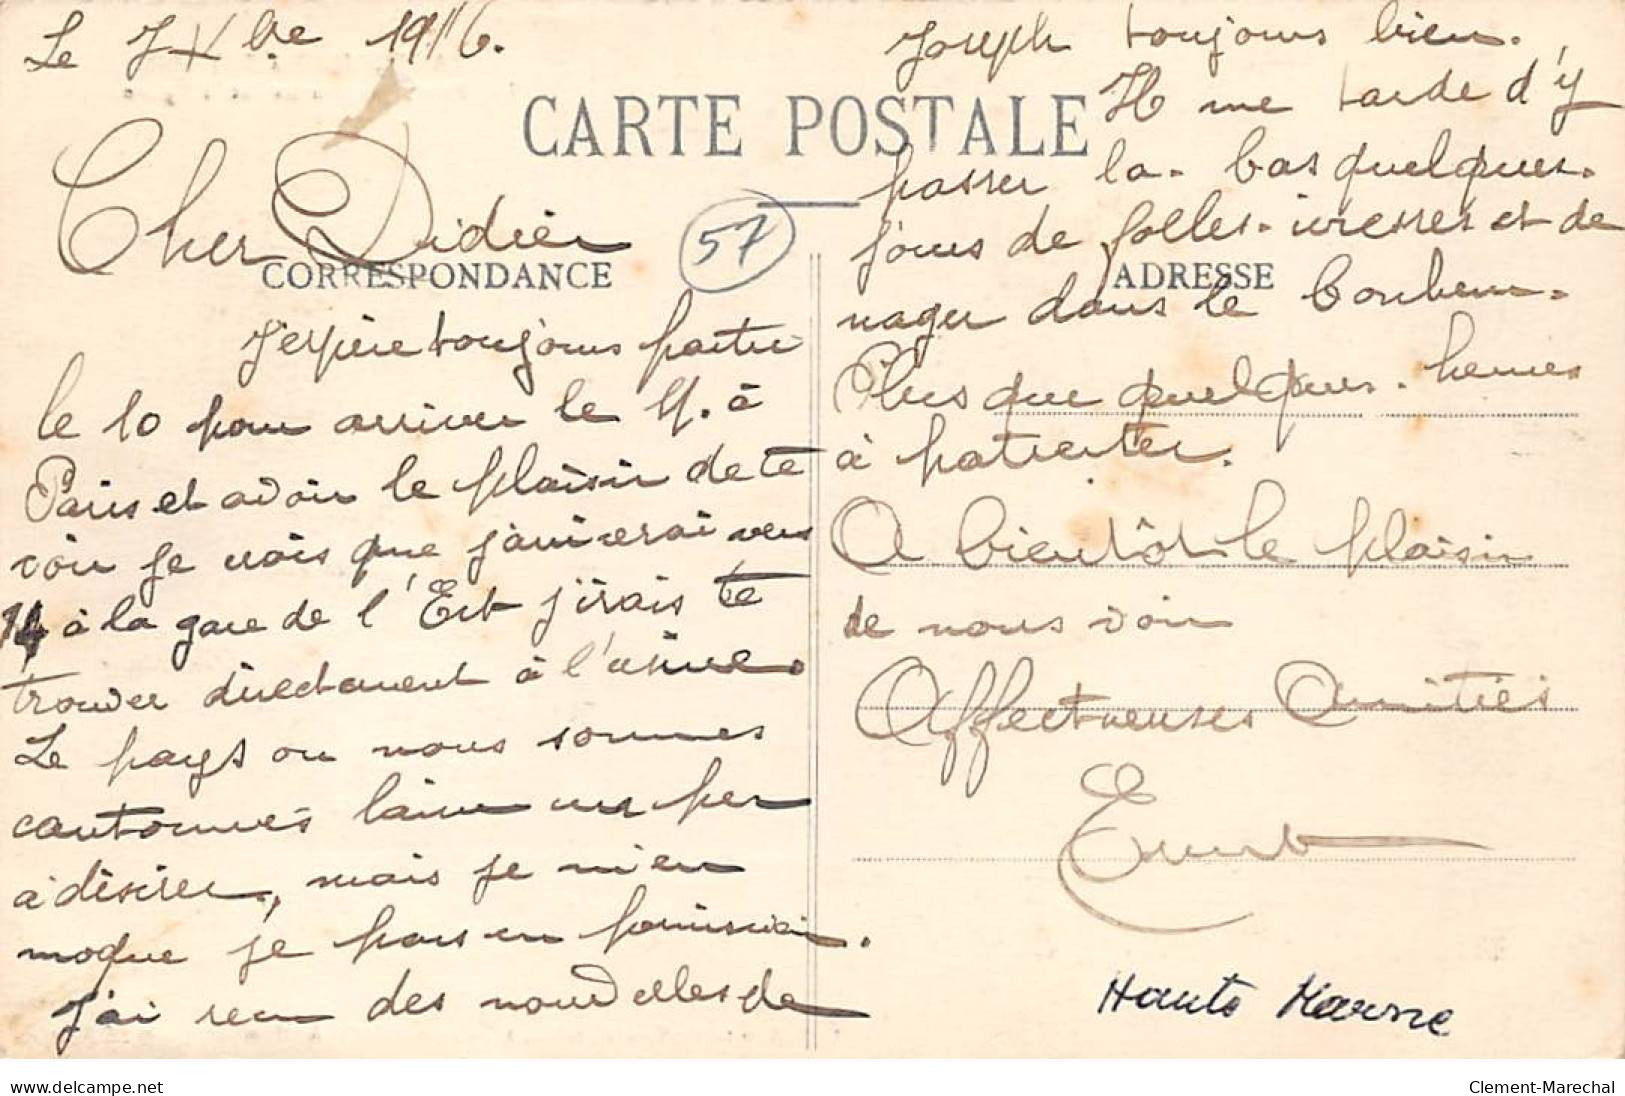 Le 7 Xbre 1916.
CARTE POSTALE
57
CORRESPONDANCE
ADRESSE
Cher Didier
J'espère toujours partir
le 10 pour arriver le 11. à
Paris et avoir le plaisir de te
voir je vois que j'arriverai vers
14 à la gare de l'Est j'irais te
trouver directement à l'usine.
Le pays ou nous sommes
cantonnés laisse un peu
à désirer, mais je m'en
moque je pars en permission.
J'ai recu des nouvelles de
Joseph toujours bien.
Il me tarde d'y
passer la-bas quelques
jours de folles ivresses et de
nager dans le bonheur.
Plus que quelques heures
à patienter.
A bientôt le plaisir
de nous voir
Affectueuses Amitiés
Haute Marne
www.delcampe.net
Clement-Marechal